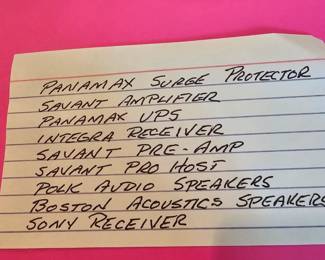 PANAMAX SURGE PROTECTOR
SAVANT AMPLIFIER
PANAMAX UPS
INTEGRA RECEIVER
SAVANT PRE-AMP
SAVANT PRO HOST
POLK AUDIO SPEAKERS
BOSTON ACOUSTICS SPEAKERS
SONY RECEIVER